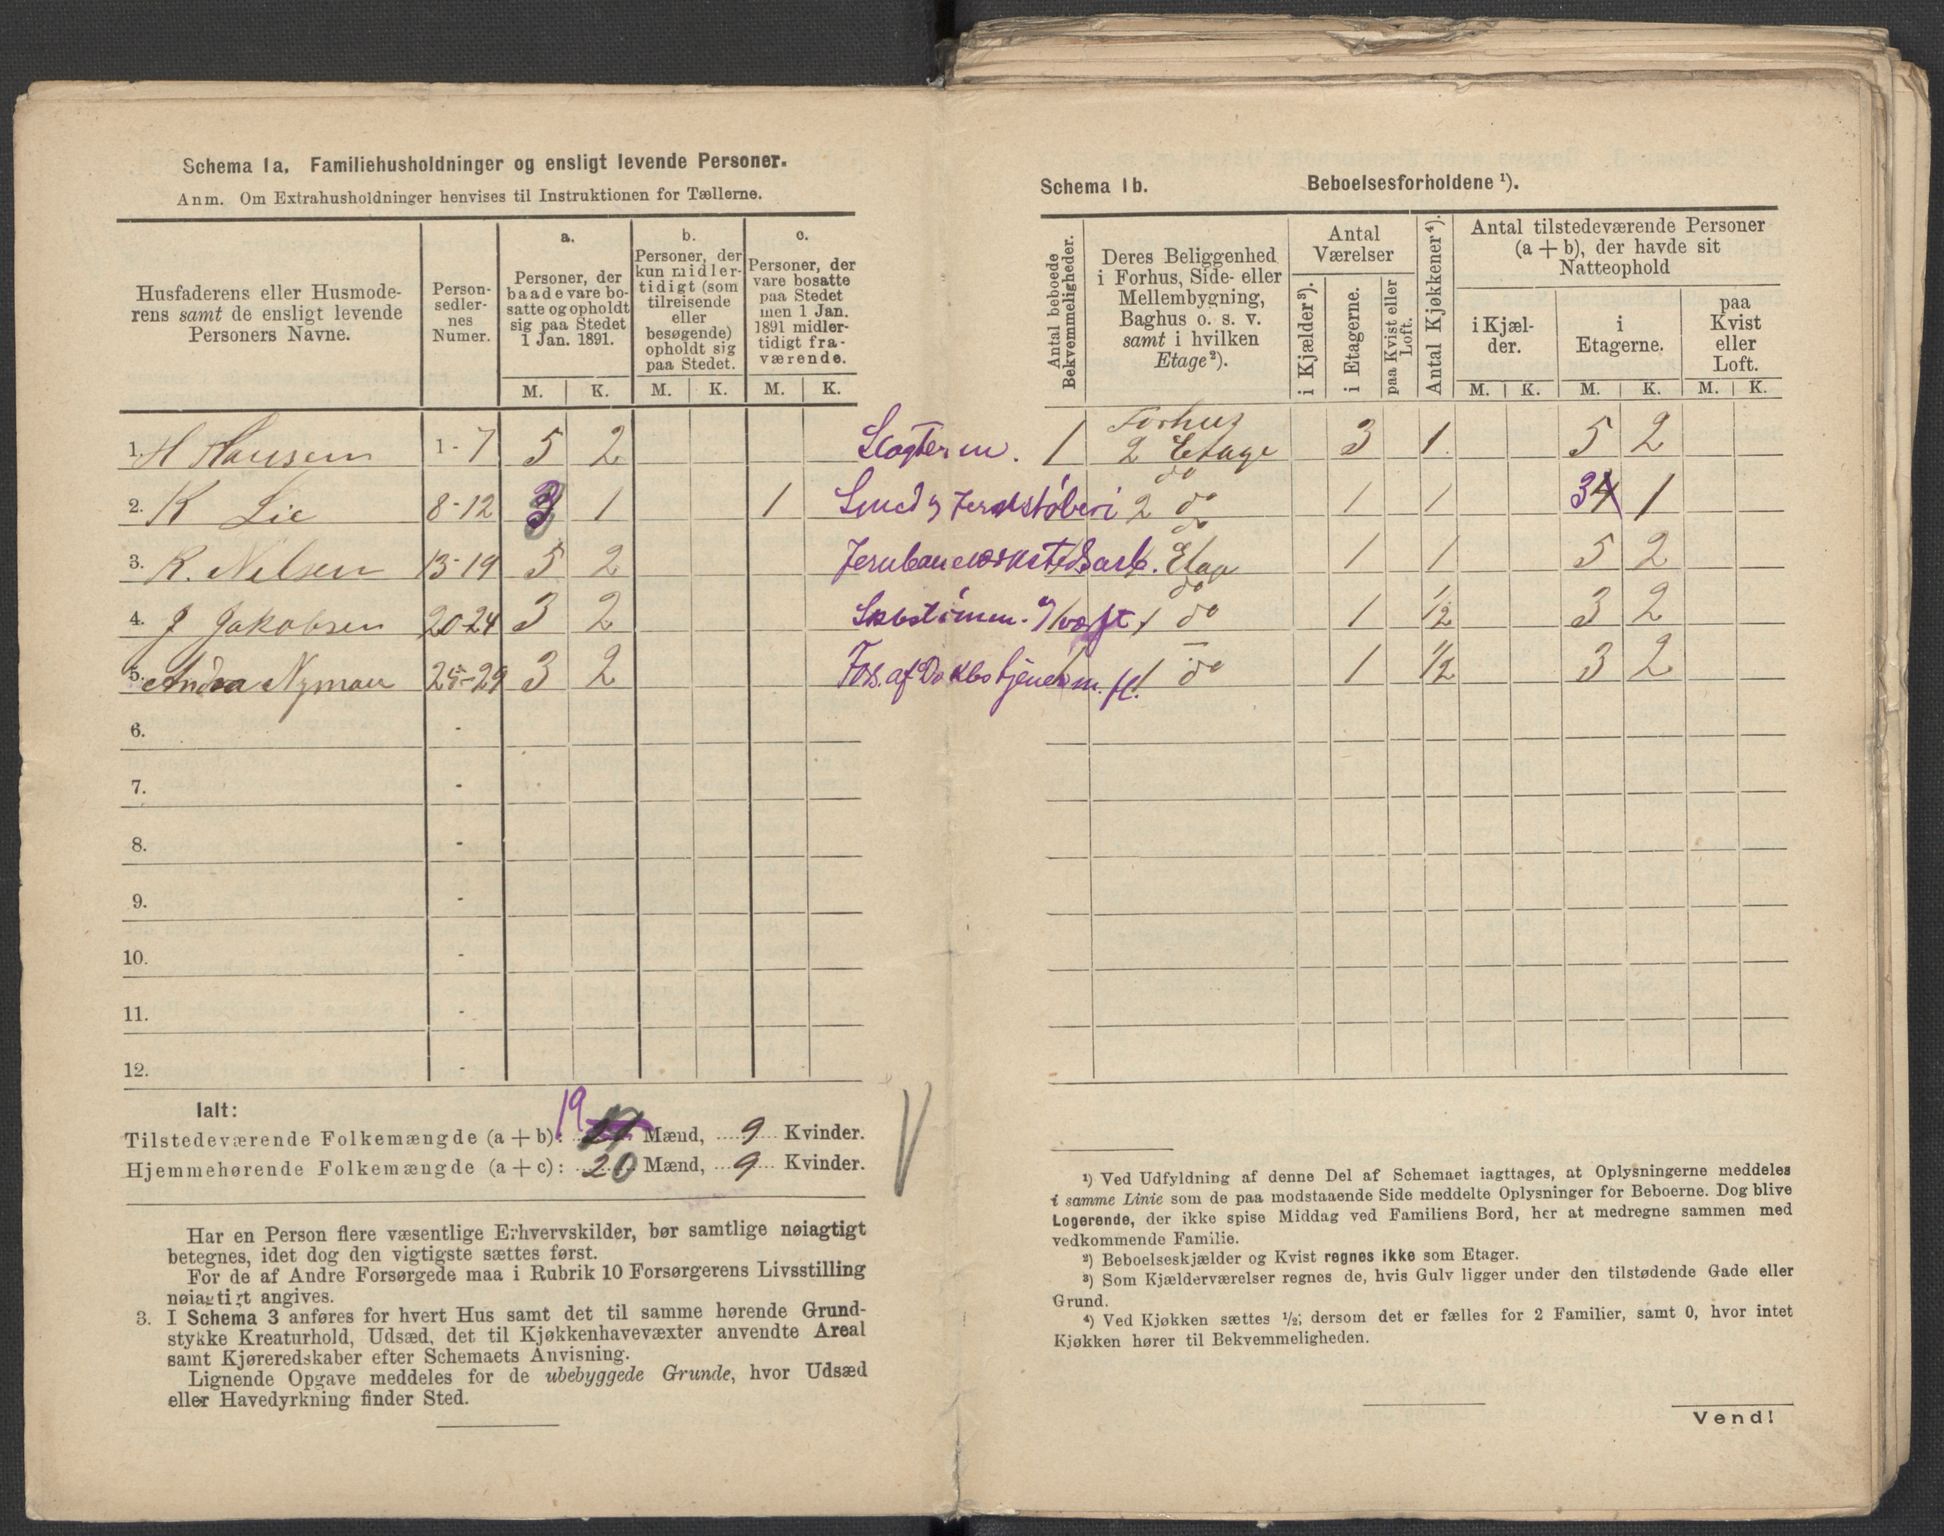 Schema 1a. Familiehusholdninger og ensligt levende Personer.
Anm. Om Extrahusholdninger henvises til Instruktionen for Tællerne.
Husfaderens eller Husmode-
rens samt de ensligt levende
Personers Navne.
Person-
sedler-
nes
Numer.
a.
Personer, der
baade vare bo-
satte og opholdt
sig paa Stedet
1 Jan. 1891.
b.
Personer, der
kun midler-
tidigt (som
tilreisende
eller
besøgende)
opholdt sig
paa Stedet.
c.
Personer, der
vare bosatte
paa Stedet
men 1 Jan.
1891 midler-
tidigt fra-
værende.
M. K. M. K. M. K.
1. H Hansen 1-7 5 2
2. K Lie 8-12 3 1 1
3. K. Nelsen 13-19 5 2
4. J Jakobsen 20-24 3 2
5. Andrea Nyman 25-29 3 2
6. -
7. -
8. -
9. -
10. -
11. -
12. -
Ialt:
Tilstedeværende Folkemængde (a+b): 19 Mænd, 9 Kvinder.
Hjemmehørende Folkemængde (a+c): 20 Mænd, 9 Kvinder.
Har en Person flere væsentlige Erhvervskilder, bør samtlige nøiagtigt
betegnes, idet dog den vigtigste sættes først.
For de af Andre Forsørgede maa i Rubrik 10 Forsørgerens Livsstilling
nøiagtigt angives.
3. I Schema 3 anføres for hvert Hus samt det til samme hørende Grund-
stykke Kreaturhold, Udsæd, det til Kjøkkenhavevæxter anvendte Areal
samt Kjøreredskaber efter Schemaets Anvisning.
Lignende Opgave meddeles for de ubebyggede Grunde, hvor Udsæd
eller Havedyrkning finder Sted.
Schema 1b. Beboelsesforholdene ¹).
Antal beboede
Bekvemmeligheder.
Deres Beliggenhed
i Forhus, Side- eller
Mellembygning,
Baghus o. s. v.
samt i hvilken
Etage²).
Antal
Værelser
i Kjælder³).
i Etagerne.
paa Kvist eller
Loft.
Antal Kjøkkener⁴).
Antal tilstedeværende Personer
(a+b), der havde sit
Natteophold
i Kjæl-
der.
i
Etagerne.
paa
Kvist
eller
Loft.
M. K. M. K. M. K.
Slagterm. 1 Forhus
2 Etage 3 1 5 2
Smed 2 do do 1 1 3 4 1
Jernbaneværkstedsarb. 1 do Etage 1 1 5 2
1 do do 1 ½ 3 2
Fors. af 1 do 1 ½ 3 2
¹) Ved Udfyldning af denne Del af Schemaet iagttages, at Oplysningerne meddeles
i samme Linie som de paa modstaaende Side meddelte Oplysninger for Beboerne. Dog blive
Logerende, der ikke spise Middag ved Familiens Bord, her at medregne sammen med
vedkommende Familie.
²) Beboelseskjælder og Kvist regnes ikke som Etager.
³) Som Kjælderværelser regnes de, hvis Gulv ligger under den tilstødende Gade eller
Grund.
⁴) Ved Kjøkken sættes ½; dersom det er fælles for 2 Familier, samt 0, hvor intet
Kjøkken hører til Bekvemmeligheden.
Vend!